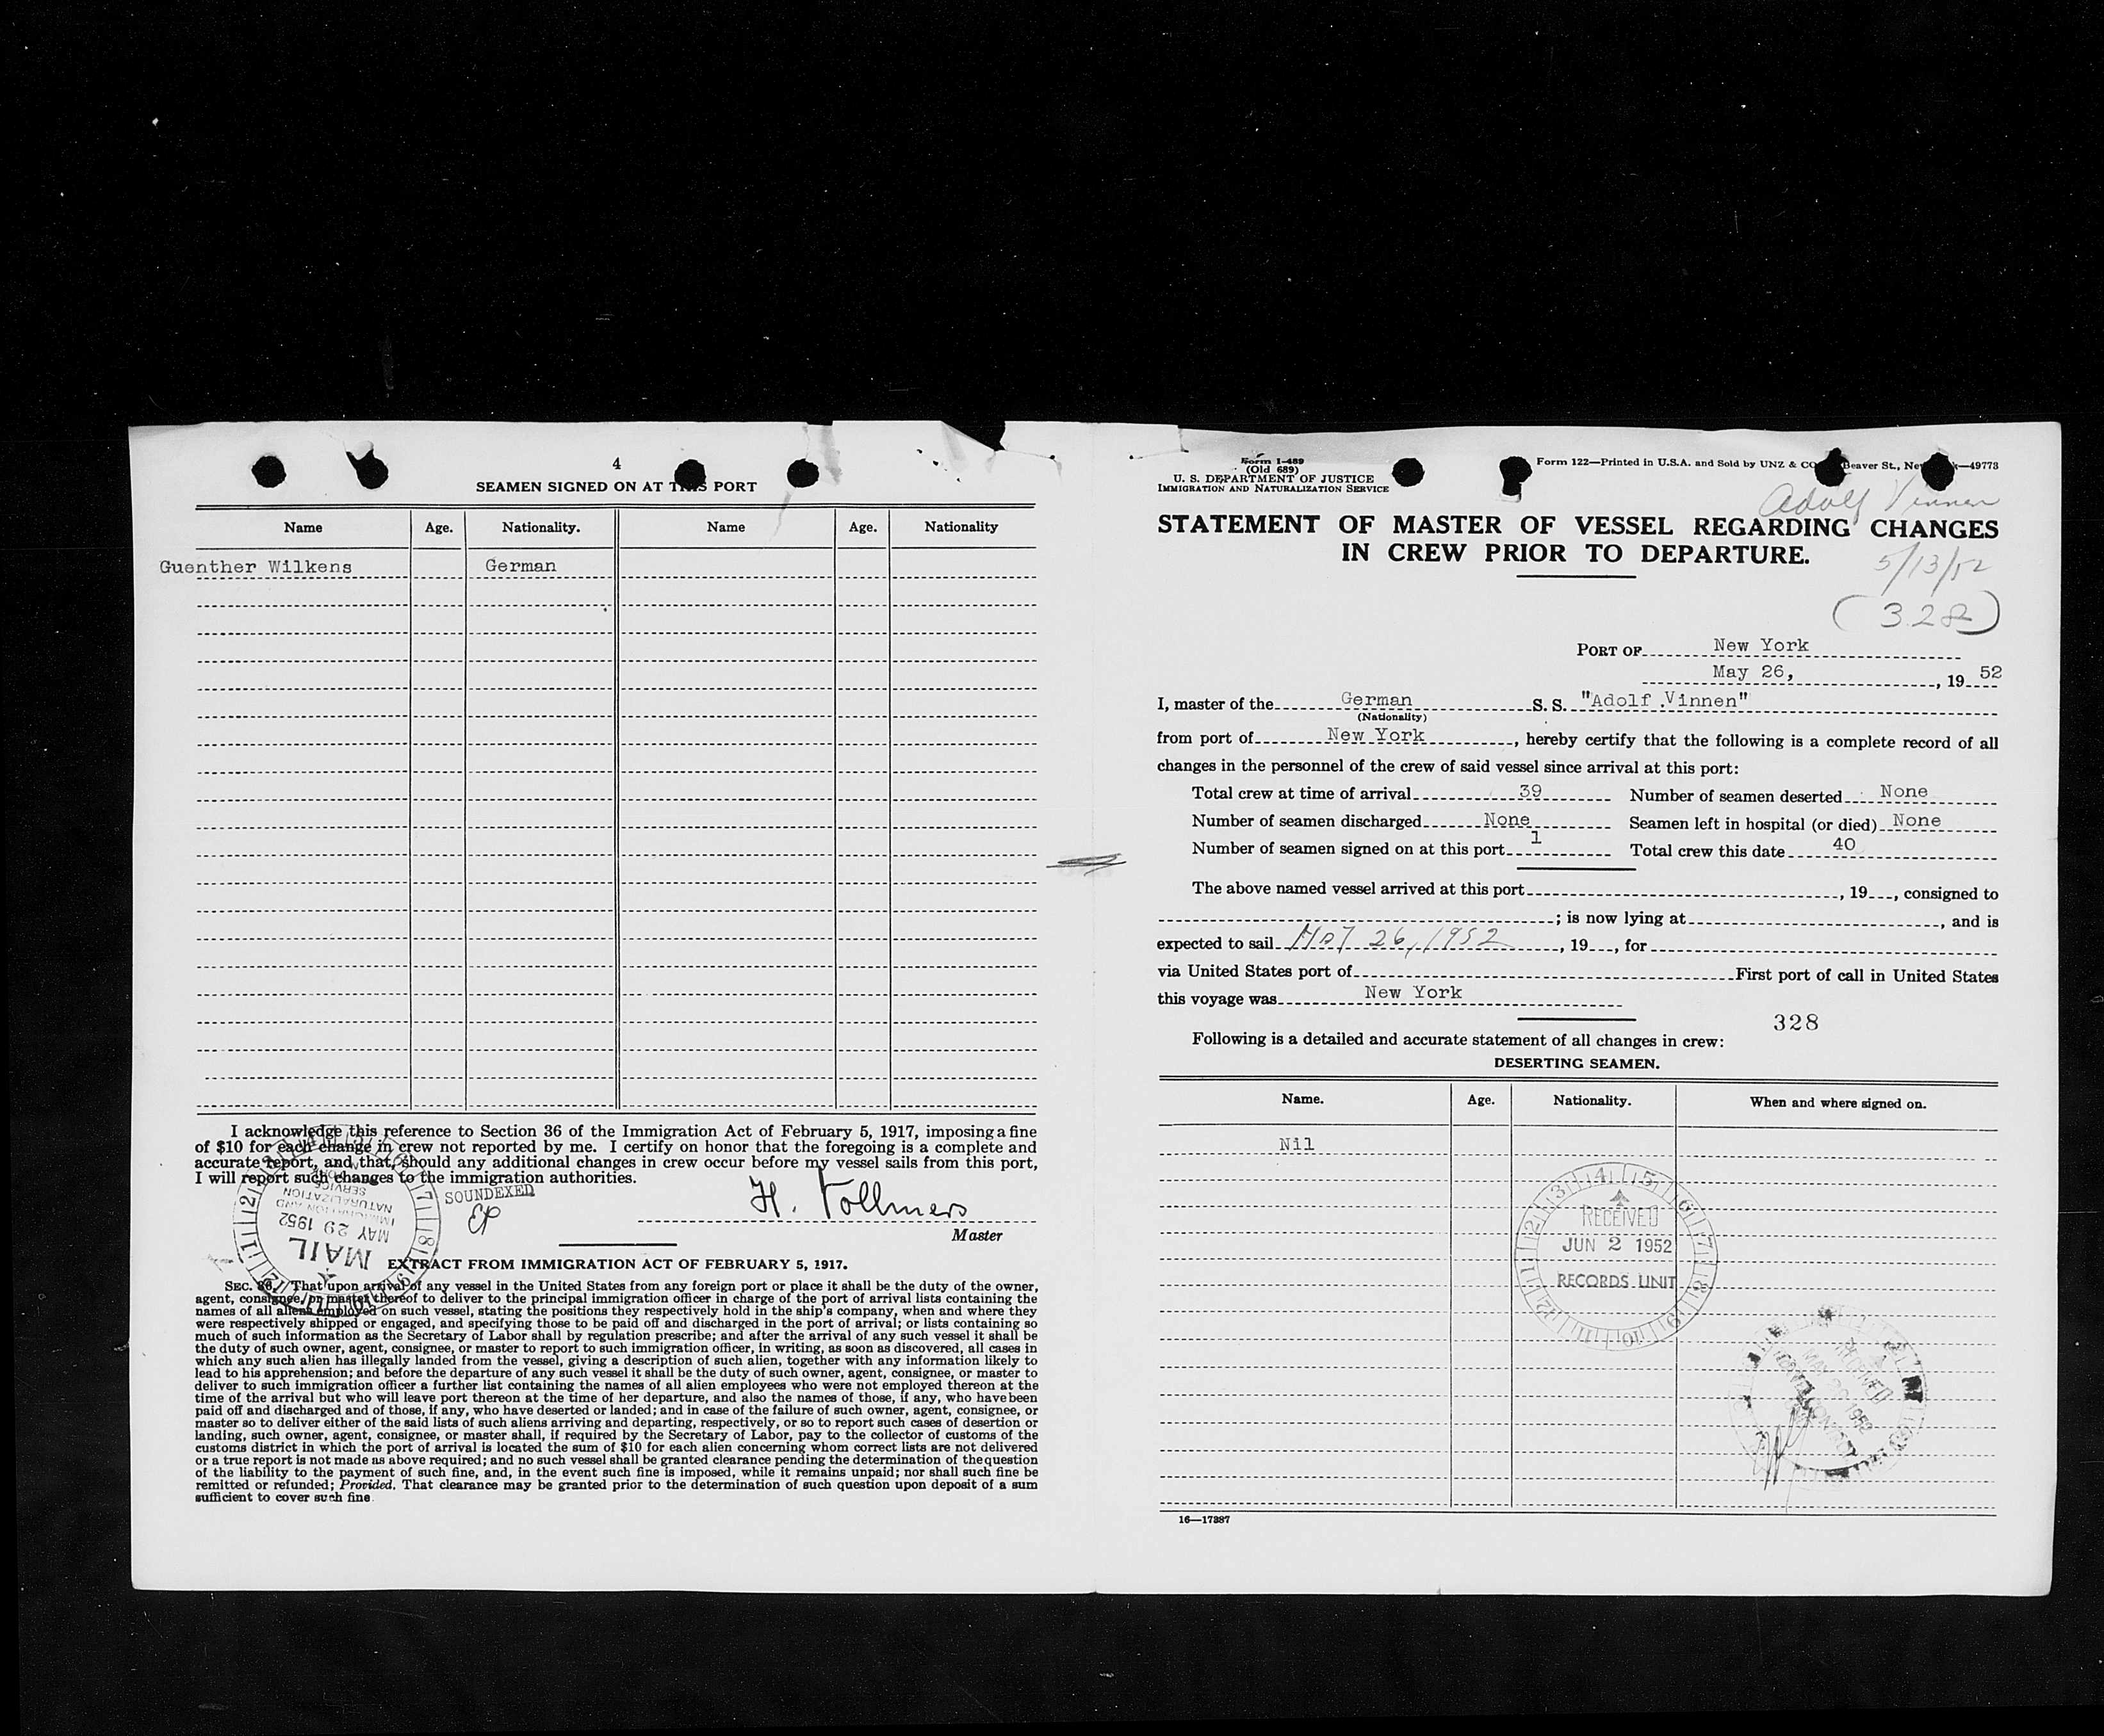 4
SEAMEN SIGNED ON AT THIS PORT
Name Age. Nationality. Name Age. Nationality
Guenther Wilkens German
I acknowledge this reference to Section 36 of the Immigration Act of February 5, 1917, imposing a fine
of $10 for each change in crew not reported by me. I certify on honor that the foregoing is a complete and
accurate report, and that, should any additional changes in crew occur before my vessel sails from this port,
I will report such changes to the immigration authorities.
SOUNDEXED
EP
H. Vollmers
Master
MAIL
MAY 29 1952
IMMIGRATION AND
NATURALIZATION
SERVICE
EXTRACT FROM IMMIGRATION ACT OF FEBRUARY 5, 1917.
SEC. 36. That upon arrival of any vessel in the United States from any foreign port or place it shall be the duty of the owner,
agent, consignee, or master thereof to deliver to the principal immigration officer in charge of the port of arrival lists containing the
names of all aliens employed on such vessel, stating the positions they respectively hold in the ship's company, when and where they
were respectively shipped or engaged, and specifying those to be paid off and discharged in the port of arrival; or lists containing so
much of such information as the Secretary of Labor shall by regulation prescribe; and after the arrival of any such vessel it shall be
the duty of such owner, agent, consignee, or master to report to such immigration officer, in writing, as soon as discovered, all cases in
which any such alien has illegally landed from the vessel, giving a description of such alien, together with any information likely to
lead to his apprehension; and before the departure of any such vessel it shall be the duty of such owner, agent, consignee, or master to
deliver to such immigration officer a further list containing the names of all alien employees who were not employed thereon at the
time of the arrival but who will leave port thereon at the time of her departure, and also the names of those, if any, who have been
paid off and discharged and of those, if any, who have deserted or landed; and in case of the failure of such owner, agent, consignee, or
master so to deliver either of the said lists of such aliens arriving and departing, respectively, or so to report such cases of desertion or
landing, such owner, agent, consignee, or master shall, if required by the Secretary of Labor, pay to the collector of customs of the
customs district in which the port of arrival is located the sum of $10 for each alien concerning whom correct lists are not delivered
or a true report is not made as above required; and no such vessel shall be granted clearance pending the determination of the question
of the liability to the payment of such fine, and, in the event such fine is imposed, while it remains unpaid; nor shall such fine be
remitted or refunded; Provided, That clearance may be granted prior to the determination of such question upon deposit of a sum
sufficient to cover such fine.
Form I-489
(Old 689)
U. S. DEPARTMENT OF JUSTICE
IMMIGRATION AND NATURALIZATION SERVICE
Form 122—Printed in U.S.A. and Sold by UNZ & CO Beaver St., New —49773
Adolf Vinnen
STATEMENT OF MASTER OF VESSEL REGARDING CHANGES
IN CREW PRIOR TO DEPARTURE.
5/13/52
(328)
PORT OF New York
May 26, , 19 52
I, master of the German S. S. "Adolf Vinnen"
(Nationality)
from port of New York , hereby certify that the following is a complete record of all
changes in the personnel of the crew of said vessel since arrival at this port:
Total crew at time of arrival 39 Number of seamen deserted None
Number of seamen discharged None Seamen left in hospital (or died) None
Number of seamen signed on at this port 1 Total crew this date 40
The above named vessel arrived at this port , 19 , consigned to
; is now lying at , and is
expected to sail May 26, 1952 , 19 , for
via United States port of First port of call in United States
this voyage was New York
328
Following is a detailed and accurate statement of all changes in crew:
DESERTING SEAMEN.
Name. Age. Nationality. When and where signed on.
Nil
RECEIVED
JUN 2 1952
RECORDS UNIT
16—17387